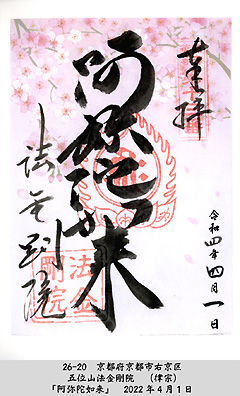 奉拝
阿弥陀如来
令和四年四月一日
法金剛院
法金
剛院
26-20 京都府京都市右京区
五位山法金剛院 (律宗)
「阿弥陀如来」 2022年4月1日